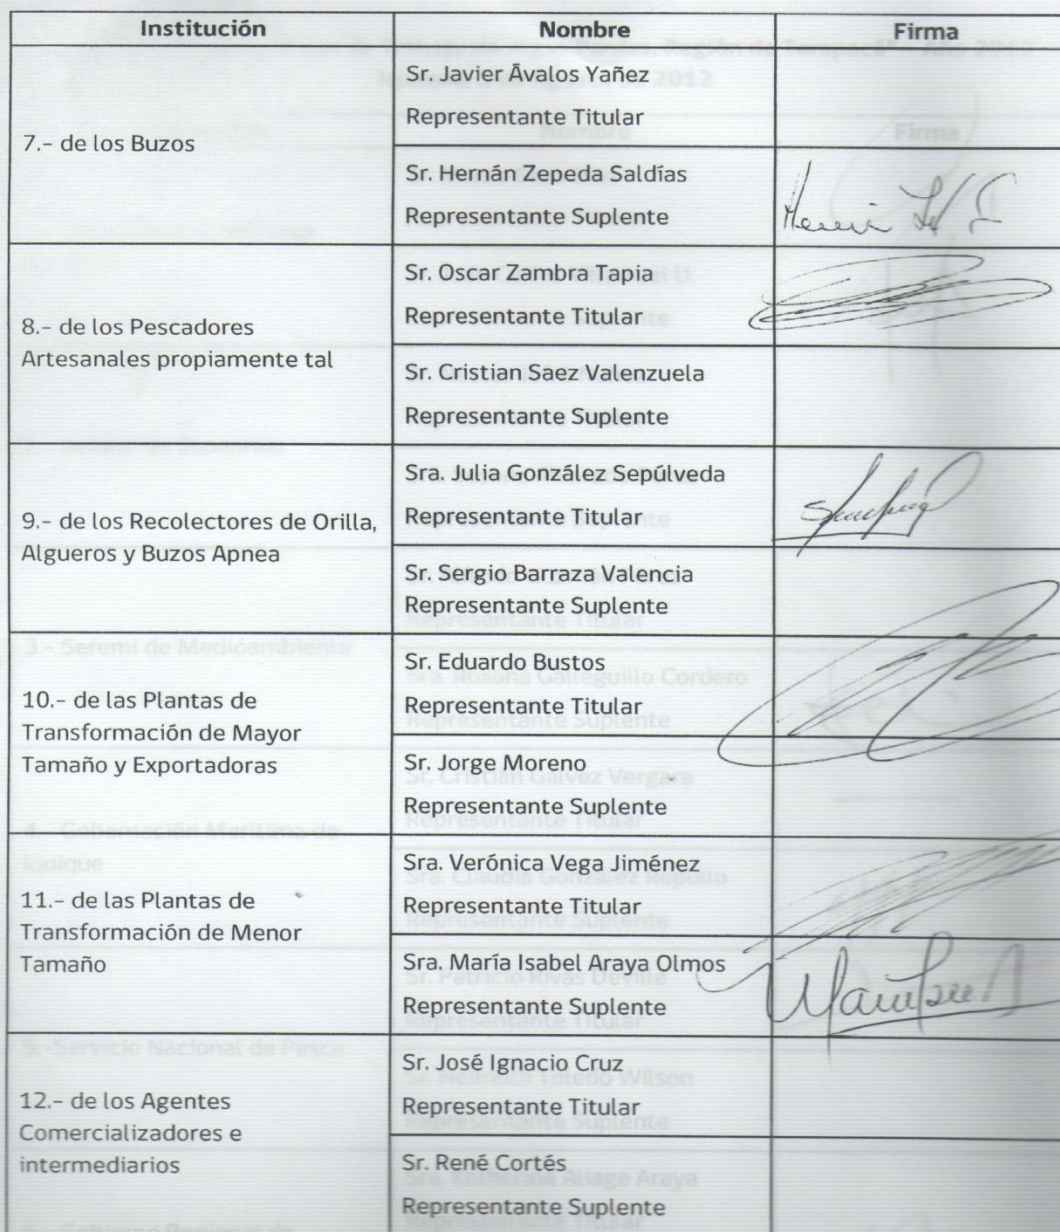 Institución Nombre Firma
7.- de los Buzos
Sr. Javier Ávalos Yañez
Representante Titular
Sr. Hernán Zepeda Saldías
Representante Suplente
8.- de los Pescadores
Artesanales propiamente tal
Sr. Oscar Zambra Tapia
Representante Titular
Sr. Cristian Sáez Valenzuela
Representante Suplente
9.- de los Recolectores de Orilla,
Algueros y Buzos Apnea
Sra. Julia González Sepúlveda
Representante Titular
Sr. Sergio Barraza Valencia
Representante Suplente
10.- de las Plantas de
Transformación de Mayor
Tamaño y Exportadoras
Sr. Eduardo Bustos
Representante Titular
Sr. Jorge Moreno
Representante Suplente
11.- de las Plantas de
Transformación de Menor
Tamaño
Sra. Verónica Vega Jiménez
Representante Titular
Sra. María Isabel Araya Olmos
Representante Suplente
12.- de los Agentes
Comercializadores e
intermediarios
Sr. José Ignacio Cruz
Representante Titular
Sr. René Cortés
Representante Suplente